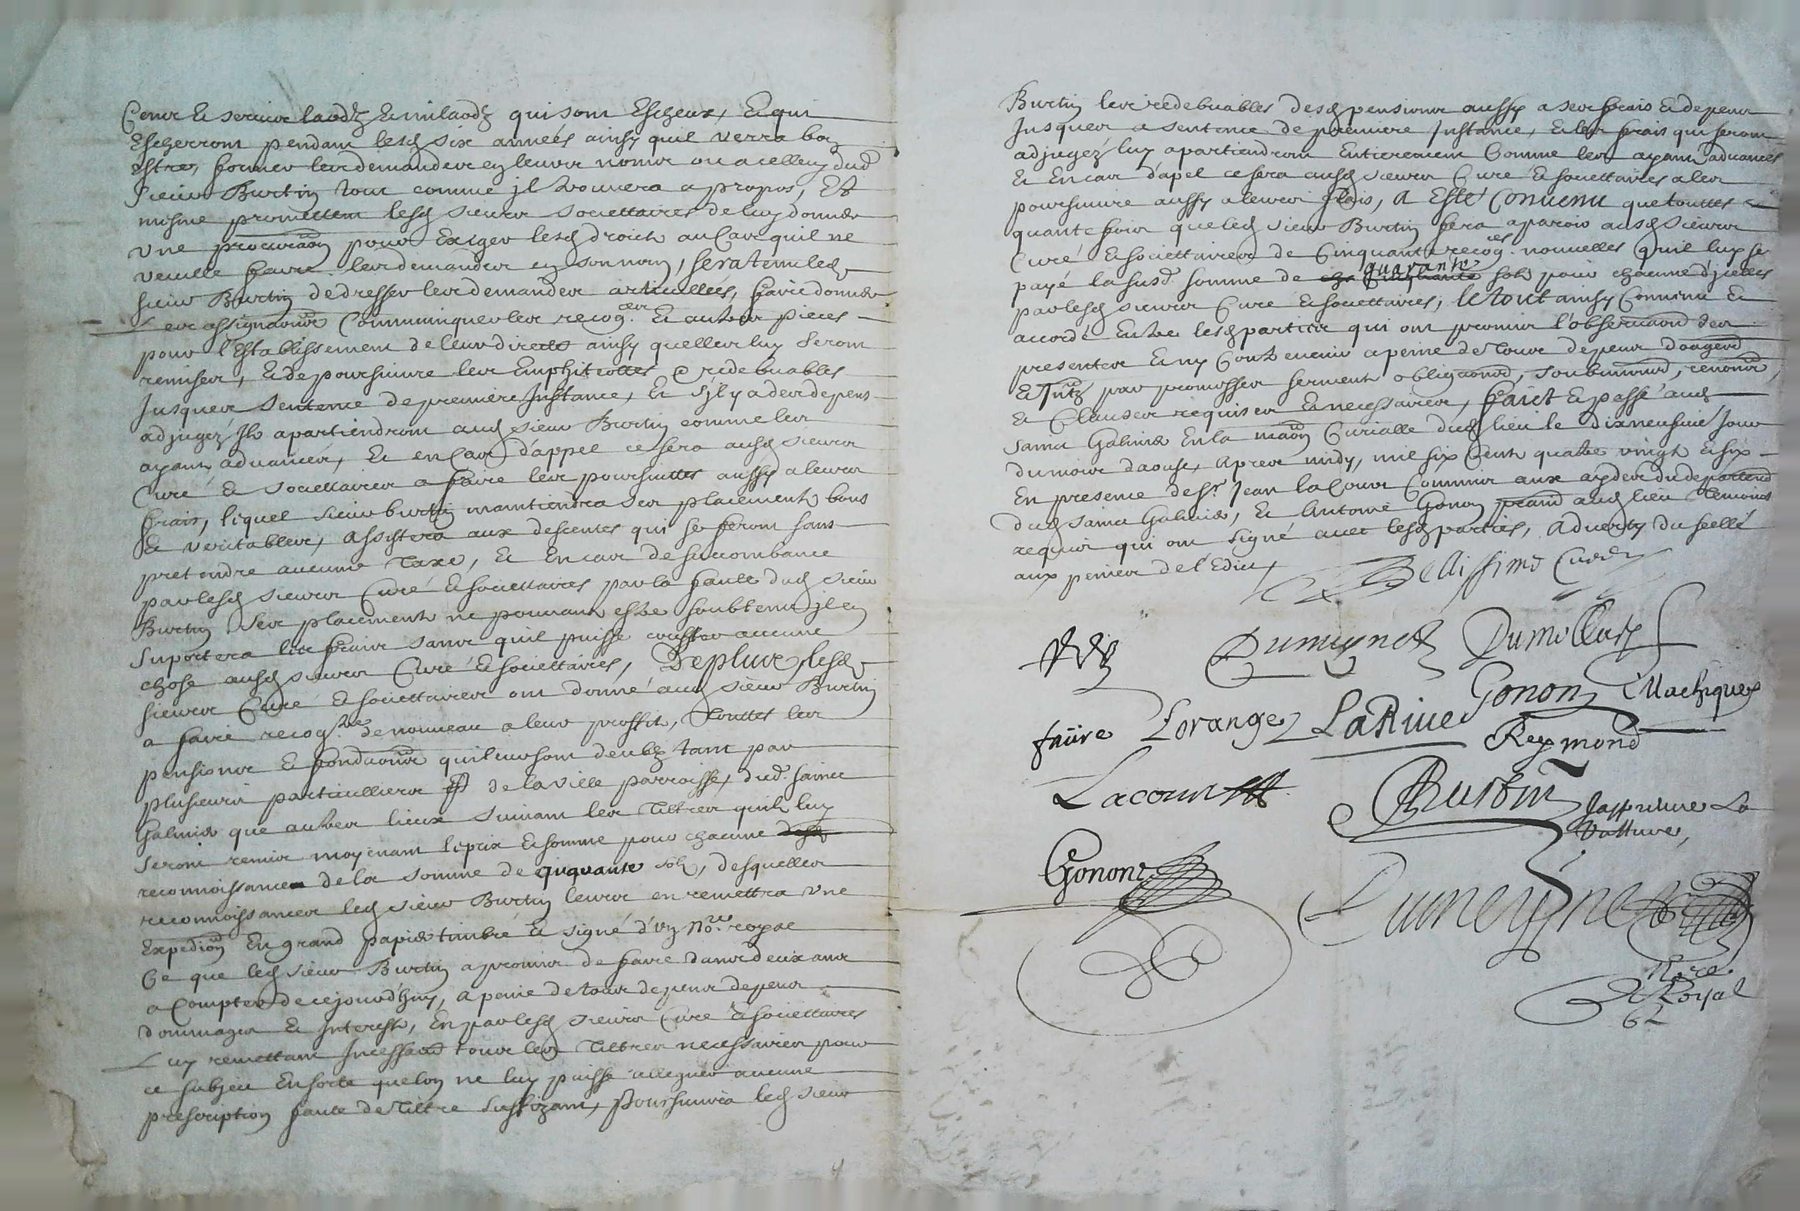 Cens et servis laodz et milaodz qui sont Escheux, Et qui
Escherront pendant lesd six années ainsy quil verra bon
Estre, former les demandes en leurs noms ou a celluy dud
Sieur Burtin tout comme jl trouvera a propos, Et
mesme promettent lesd sieurs societtaires de luy donner
Une procuraon pour Exiger lesd droits au Cas quil ne
veuille faire les demandes en son nom, sera tenu led
sieur Burtin de dresser les demandes articullées, faire donner
Les assignaons Communiquer les recog.ces Et autres pieces
pour l'Establissement de leur directe ainsy quelles luy seront
remises, Et de poursuivre les Emphiteottes et redebvables
Jusques Sentence de premiere Instance, Et s'jl y a des depens
adjugéz Jls apartiendront aud sieur Burtin comme les
ayant advances, Et en Cas d'appel ce sera ausd sieurs
Curé Et societtaires a faire les poursuittes aussy a leurs
frais, lequel sieur Burtin maintiendra ses placements bons
Et veritables, Assistera aux descentes qui se feront sans
pretendre aucune Taxe, Et En cas de succombance
par lesd sieurs Curé Et societtaires par la faute dud sieur
Burtin ses placements ne pouvant estre soubtenus jl en
suportera les frais sans quil puisse couster aucune
chose ausd sieurs Curé Et societtaires, De plus lesd
sieurs Curé Et societtaires ont donné aud sieur Burtin
a faire recog.ces de nouveau a leur proffit, Touttes les
pensions Et fondaons quileur sont deubz tant par
plusieurs particulliers de la ville parroisse, dud. sainct
Galmier que autres lieux suivant les Tiltres quils luy
seront remis moyenant le prix Et somme pour chacune
reconnoissance de la somme de quarante sols, desquelles
reconnoissances led sieur Burtin leurs en remettra Une
Expedion En grand papier timbré Et signé d'un No.re royal
Ce que led sieur Burtin a promis de faire dans deux ans
a Compter de cejourd'huy, a peine de tous depens
dommages Et Interests, En par lesd sieurs Curé Et societtaires
Luy remettant Incessant tous les Tiltres necessaires pour
ce subject En sorte quelon ne luy puisse alleguer aucune
prescription faute de Tiltre suffizant, Poursuivra led sieur
Burtin les redebvables desd pensions aussy a ses frais Et depens
Jusques a sentence de premiere Instance, Et les frais qui seront
adjugéz luy apartiendront Entierement Comme les ayant advancés
Et En cas d'apel ce sera ausd sieurs Curé Et societtaires a les
poursuivre aussy a leurs frais, A Esté Convenu que touttes
quantefois que led sieur Burtin fera aparoir ausd sieurs
Curé Et societtaires de Cinquante recog.ces nouvelles quil luy sera
payé la susd. somme de quarante sols pour chacune d'jcelles
par lesd sieurs Curé Et societtaires, le tout ainsy Convenu Et
accordé Entre lesd parties qui ont promis l'observaon des
presentes Et ny Contrevenir a peine de tous depens
Et Intz par promesses serment obligaons, soubmions, renons,
Et Clauses requises Et necessaires, faict Et passé aud
sainct Galmier En la maison Curialle dud lieu le dixneufvie Jour
du mois daoust, apres midy, mil six Cents quatre vingt Et six
En presence de s.r Jean lacour Commis aux aydes du departemt
dud sainct Galmier, Et Antoine Gonon aud lieu Temoins
requis qui ont signé avec lesd parties, advertys du scellé
aux peines de l'Edict,
Bellissime Curé
Dumeynes Dumollard
faüre Lorange LaRive Gonon Machiques
Reymond
Lacour
Burtin
Gonont
Dumeynes
No.re
Royal